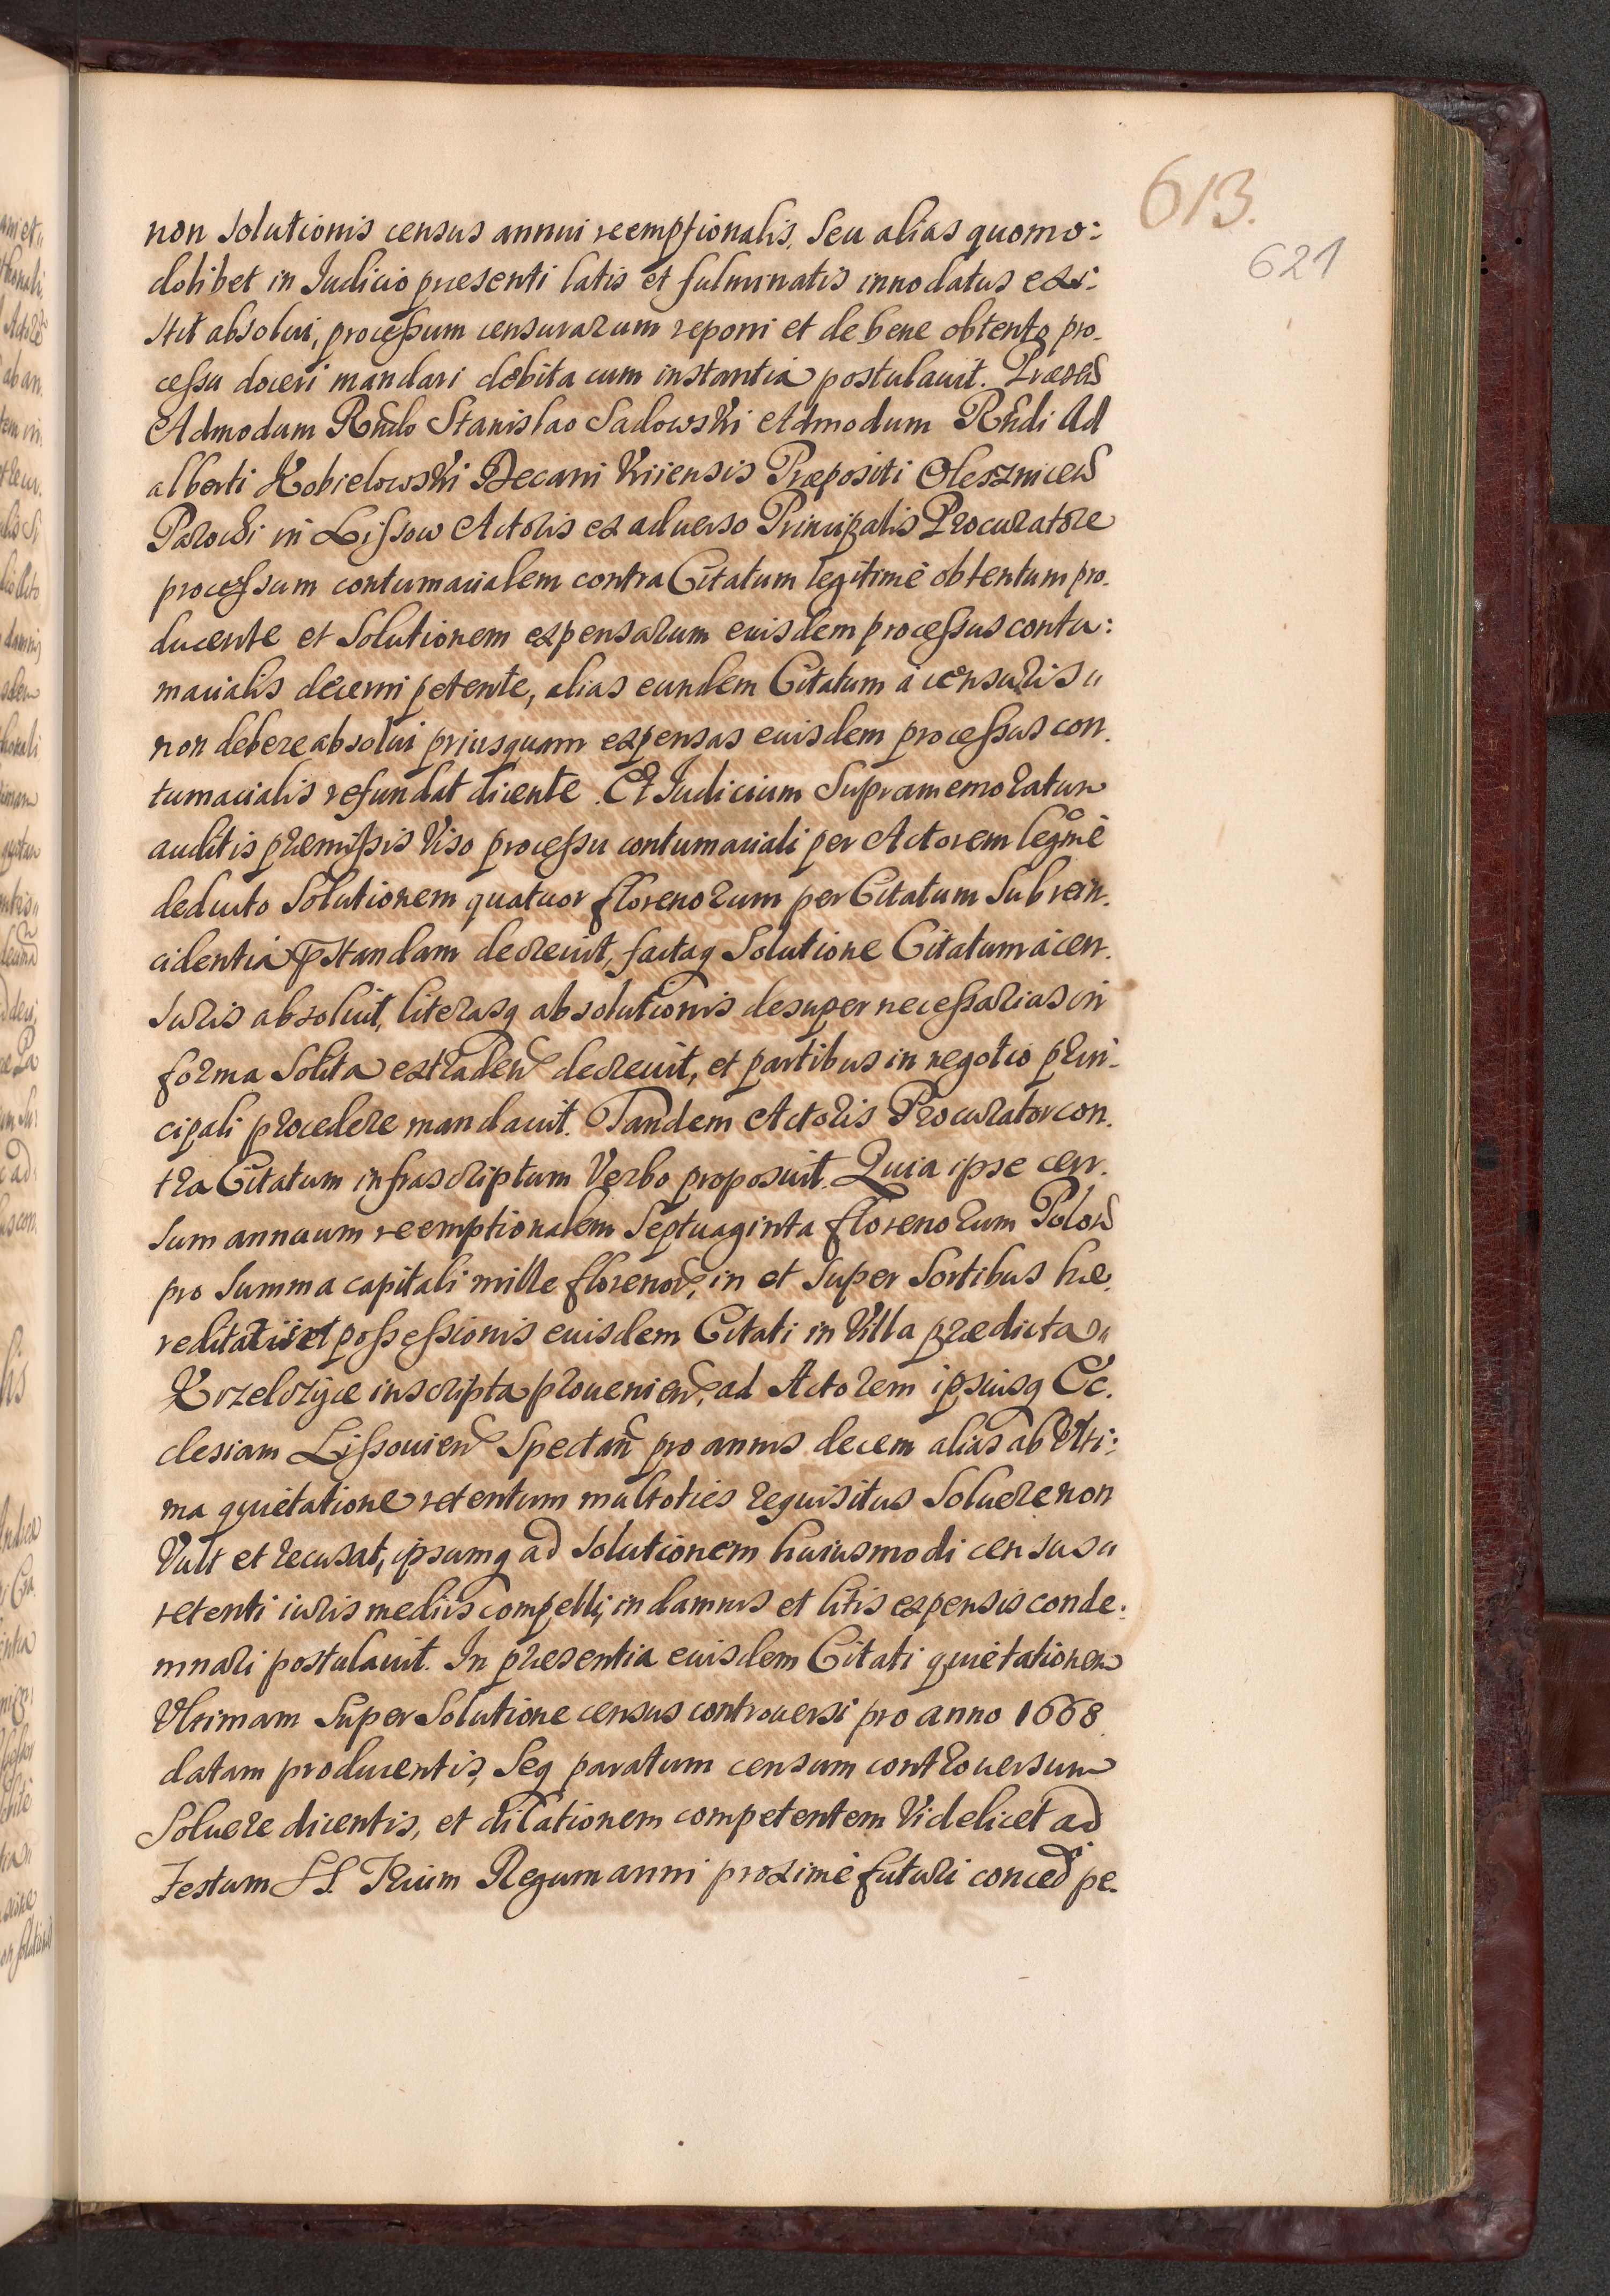 613.
621
non solutionis census annui reemptionalis, seu alias quomo:
dolibet in Iudicio præsenti latis et fulminatis innodatus exi:
stit absolui, processum censurarum reponi et de bene obtento pro.
cessu doceri mandari debita cum instantia postulauit. Præsen
Admodum Rndo Stanislao Sadowski Admodum Rndi Ad
alberti Kobielowski Decani Kiiensis Præpositi Olesznicen
Parochi in Lissow Actoris ex aduerso Principalis Procuratore
processum contumacialem contra Citatum legitimè obtentum pro.
ducente et solutionem expensarum euisdem processus contu:
macialis decerni petente, alias eundem Citatum à censuris
non debere absolui priusquam expensas euisdem processus con.
tumacialis refundat dicente. Et Iudicium supramemoratum
auditis præmissis Viso processu contumaciali per Actorem legmè
deducto solutionem quatuor florenorum per Citatum sub rein.
cidentia pstandam decreuit, factaq solutione Citatum à cen.
suris absoluit, literasq absolutionis desuper necessarias in
forma solita extraden decreuit, et partibus in negotio prin.
cipali procedere mandauit. Tandem Actoris Procurator con.
tra Citatum infrascriptum Verbo proposuit. Quia ipse cen.
sum annuum reemptionalem septuaginta florenorum Polon
pro summa capitali mille florenor, in et super sortibus hæ.
reditatis et possessionis euisdem Citati in Villa prædicta
Korzelczyce inscripta prouenien, ad Actorem ipsiusq Ec.
clesiam Lissouien spectan pro annis decem alias ab Ulti:
ma quietatione retentum multoties requisitus soluere non
Vult et recusat, ipsumq ad solutionem huiusmodi census
retenti iuris mediis compelli, in damnis et litis expensis conde.
mnari postulauit. In præsentia euisdem Citati quietationem
Ultimam super solutione census controuersi pro anno 1668
datam producentis, seq paratum censum controuersum
soluere dicentis, et dilationem competentem Videlicet ad
Festum SS. Trium Regum anni proximè futuri conced pe.